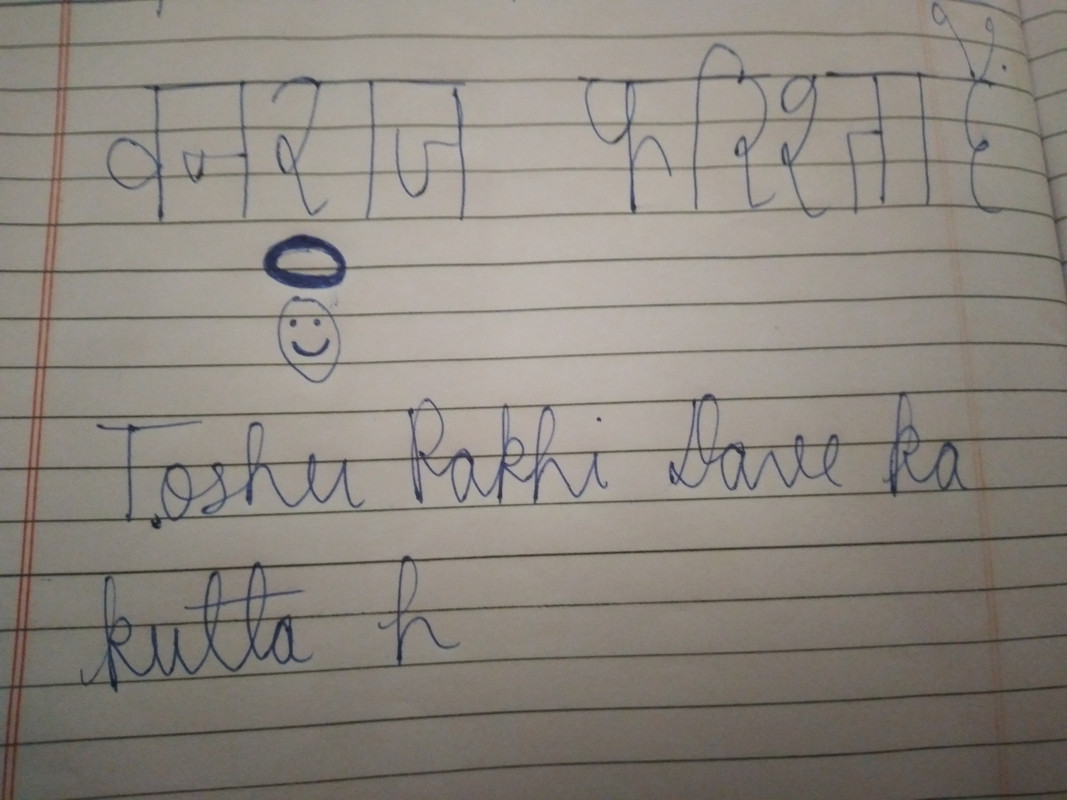 वनराज फरिश्ता है
Toshu Rakhi Dave ka
kutta h